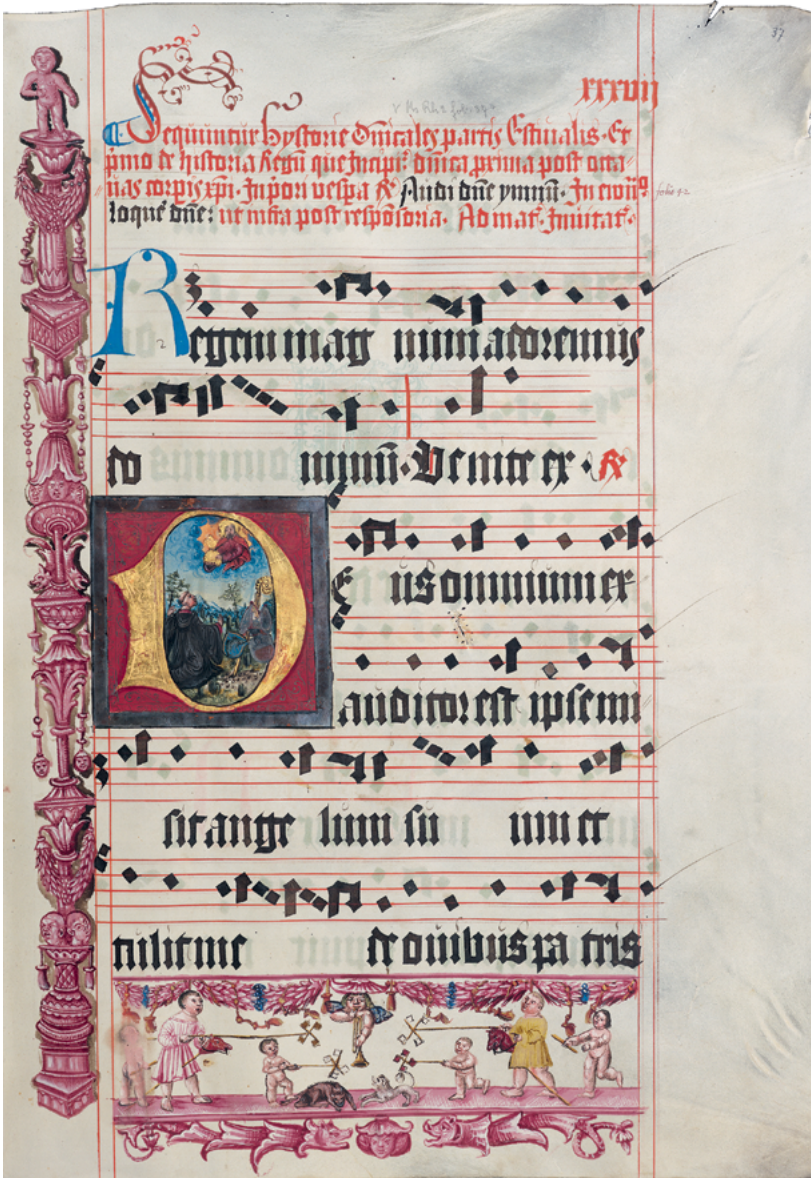 37
xxxvij
Sequuntur hystorie dnicales partis Estiualis. Et
pmo de historia Regū que Incipit dnica prima post octa
uas corpis xpi. In pori vespa R Audi dne ymnū. In
loque dne: ut infra post responsoria. Ad mat. Inuitat.
Regem mag num adoremus
do minū. Uenite ex. R
DE us omnium ex
auditor est ipse mi
sit ange lum su um et
tulit me de ouibus pa tris